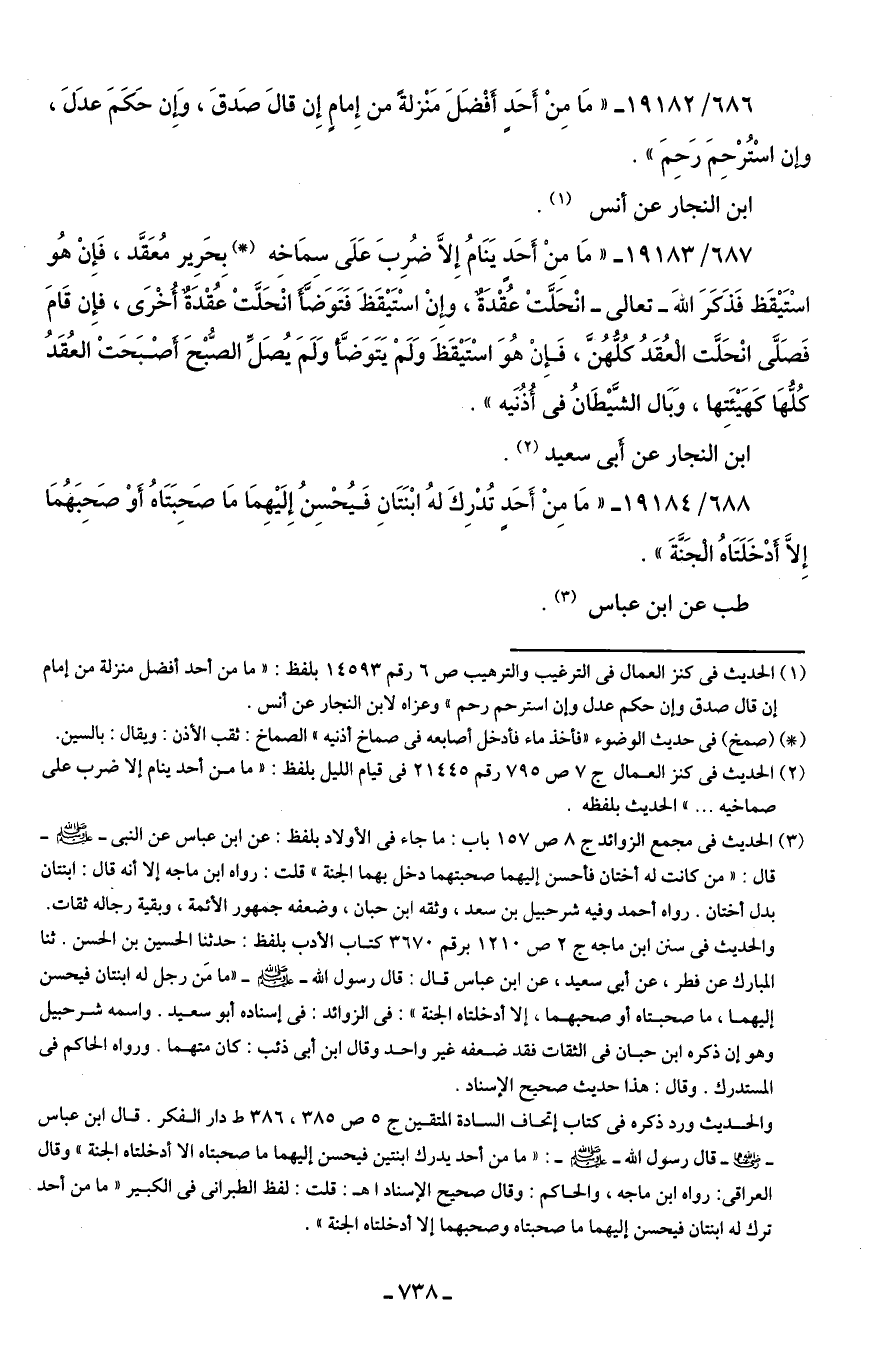 ٦٨٦/ ١٩١٨٢ـ « مَا مِنْ أَحَدٍ أَفْضَلَ مَنْزِلةً من إِمامٍ إِن قالَ صَدقَ ، وَإِن حَكَمَ عدَلَ ،
وإن استُرْحِمَ رَحِمَ » .
ابن النجار عن أنس (١) .
٦٨٧/ ١٩١٨٣ـ « مَا مِنْ أَحَدٍ يَنَامُ إِلاَّ ضُرِبَ عَلَى سِمَاخه (*) بِحَرِيرٍ مُعَقَّد ، فَإِنْ هُو
اسْتَيْقَظ فَذَكَرَ اللهَ ـ تعالى ـ انْحَلَّتْ عُقْدَةٌ ، وإِنْ اسْتَيْقَظَ فَتَوَضَّأَ انْحَلَّتْ عُقْدَةٌ أُخْرَى ، فإِن قَامَ
فَصَلَّى انْحَلَّت الْعُقَدُ كُلُّهُنَّ ، فَإِنْ هُوَ اسْتَيْقَظَ وَلَمْ يَتَوَضَّأْ وَلَمْ يُصَلِّ الصُّبْحَ أَصْبَحَتْ العُقَدُ
كُلُّهَا كَهَيْئَتِها ، وَبَال الشَّيْطَانُ فى أُذُنَيه » .
ابن النجار عن أَبى سعيد (٢) .
٦٨٨/ ١٩١٨٤ـ « مَا مِنْ أَحَدٍ تُدْرِكَ لهُ ابْنَتَانِ فَيُحْسِنُ إِلَيْهِمَا مَا صَحِبَتَاهُ أَوْ صَحِبَهُمَا
إِلاَّ أَدْخَلَتَاهُ الْجَنَّةَ » .
طب عن ابن عباس (٣) .
(١) الحديث فى كنز العمال فى الترغيب والترهيب ص ٦ رقم ١٤٥٩٣ بلفظ : « ما من أحد أفضل منزلة من إمام
إن قال صدق وإن حكم عدل وإن استرحم رحم » وعزاه لابن النجار عن أنس .
(*) (صمخ) فى حديث الوضوء «فأخذ ماء فأدخل أصابعه فى صماخ أذنيه » الصماخ : ثقب الأذن : ويقال : بالسين.
(٢) الحديث فى كنز العمال ج ٧ ص ٧٩٥ رقم ٢١٤٤٥ فى قيام الليل بلفظ : « ما من أحد ينام إلا ضرب على
صماخيه ... » الحديث بلفظه .
(٣) الحديث فى مجمع الزوائد ج ٨ ص ١٥٧ باب : ما جاء فى الأولاد بلفظ : عن ابن عباس عن النبى ـ ﷺ ـ
قال : « من كانت له أختان فأحسن إليهما صحبتهما دخل بهما الجنة » قلت : رواه ابن ماجه إلا أنه قال : ابنتان
بدل أختان . رواه أحمد وفيه شرحبيل بن سعد ، وثقه ابن حبان ، وضعفه جمهور الأئمة ، وبقية رجاله ثقات.
والحديث فى سنن ابن ماجه ج ٢ ص ١٢١٠ برقم ٣٦٧٠ كتاب الأدب بلفظ : حدثنا الحسين بن الحسن . ثنا
المبارك عن فطر ، عن أبى سعيد ، عن ابن عباس قال : قال رسول الله ـ ﷺ ـ «ما من رجل له ابنتان فيحسن
إليهما ، ما صحبتاه أو صحبهما ، إلا أدخلتاه الجنة » : فى الزوائد : فى إسناده أبو سعيد . واسمه شرحبيل
وهو إن ذكره ابن حبان فى الثقات فقد ضعفه غير واحد وقال ابن أبى ذئب : كان متهما . ورواه الحاكم فى
المستدرك . وقال : هذا حديث صحيح الإسناد .
والحديث ورد ذكره فى كتاب إتحاف السادة المتقين ج ٥ ص ٣٨٥ ، ٣٨٦ ط دار الفكر . قال ابن عباس
ـ رضي الله عنهما ـ قال رسول الله ـ ﷺ ـ : « ما من أحد يدرك ابنتين فيحسن إليهما ما صحبتاه الا أدخلتاه الجنة » وقال
العراقى: رواه ابن ماجه ، والحاكم : وقال صحيح الإسناد ا هـ : قلت : لفظ الطبرانى فى الكبير « ما من أحد
ترك له ابنتان فيحسن إليهما ما صحبتاه وصحبهما إلا أدخلتاه الجنة » .
ـ ٧٣٨ ـ